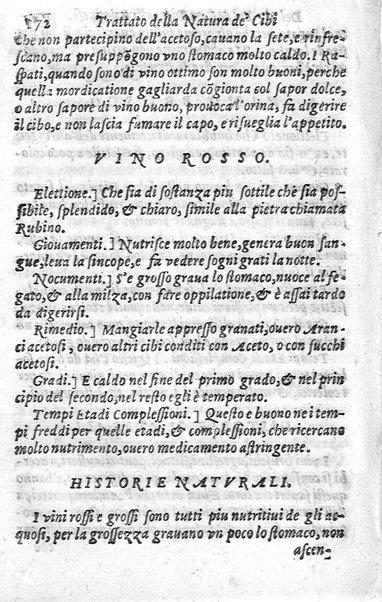 172 Trattato della Natura de' Cibi
che non partecipino dell'acetoso, cauano la sete, e rinfre-
scano, ma presuppōgono vno stomaco molto caldo. I Ra-
spati, quando sono di vino ottimo son molto buoni, perche
quella mordicatione gagliarda cōgionta col sapor dolce,
o altro sapore di vino buono, prouoca l'orina, fa digerire
il cibo, e non lascia fumare il capo, e risueglia l'appetito.
VINO ROSSO.
Elettione.] Che sia di sostanza piu sottile che sia pos-
sibile, splendido, & chiaro, simile alla pietra chiamata
Rubino.
Giouamenti.] Nutrisce molto bene, genera buon san-
gue, leua la sincope, e fa vedere sogni grati la notte.
Nocumenti.] S'e grosso graua lo stomaco, nuoce al fe-
gato, & alla milza, con fare oppilatione, & è assai tardo
da digerirsi.
Rimedio.] Mangiarle appresso granati, ouero Aran-
ci acetosi, ouero altri cibi conditi con Aceto, o con succhi
acetosi.
Gradi.] E caldo nel fine del primo grado, & nel prin-
cipio del secondo, nel resto egli è temperato.
Tempi Etadi Complessioni.] Questo e buono ne i tem-
pi freddi per quelle etadi, & complessioni, che ricercano
molto nutrimento, ouero medicamento astringente.
HISTORIE NATVRALI.
I vini rossi e grossi sono tutti piu nutritiui de gli ac-
quosi, per la grossezza grauano vn poco lo stomaco, non
ascen-